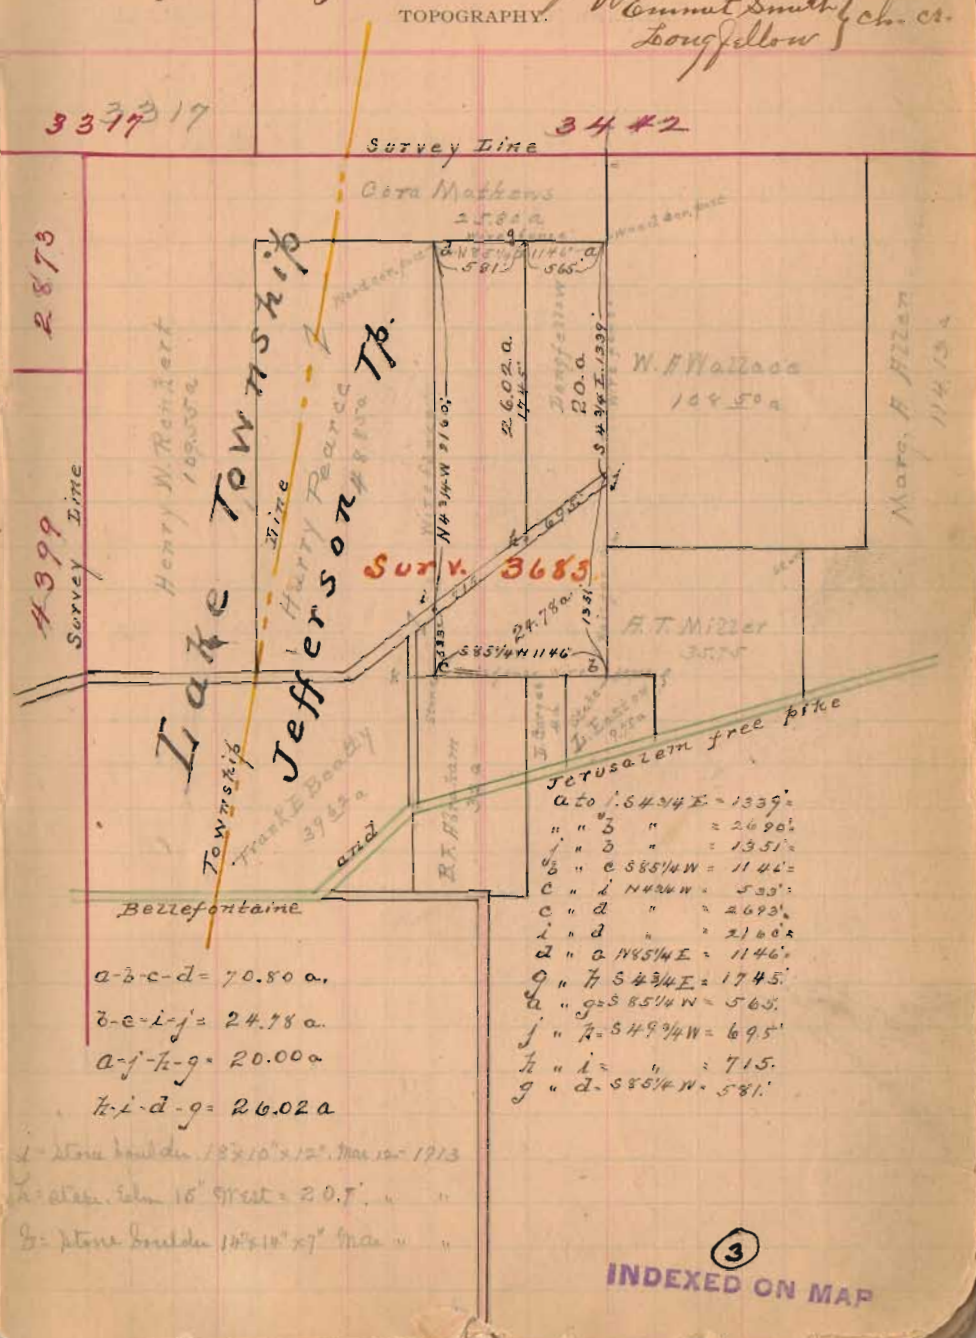 TOPOGRAPHY.
Emmet Smith } ch. cr.
Longfellow
3317 3317
3442
Survey Line
Cora Mathews
25.80 a
a
N 85¼ E 1146'
d
g
581'
565'
2873
4399
Survey Line
Henry W. Renkert
109.55 a
Lake Township
Township Line
Harry Pearce
48.85 a
Jefferson Tp.
N 4¾ W 2160'
26.02 a.
1745'
Longfellow
20. a
S 4¾ E 1339
W. A Wallace
108 50 a
Marg. A Allen
114.13 a
Surv. 3683
h
695'
715
j
i
533'
24.78 a
1351'
S 85¼ W 1146'
c
b
A. T. Miller
35.75
Frank E Beatty
39 62 a
Jerusalem free pike
and
Bellefontaine
a to j. S 4¾ E = 1339'
" " b " = 2690'
j " b " = 1351'
b " c S 85¼ W = 1146'
c " i N 4¾ W = 533'
c " d " = 2693'
i " d " = 2160'
d " a N 85¼ E = 1146'
g " h S 4¾ E = 1745'
a " g = S 85¼ W = 565.
j " h = S 49¾ W = 695'
h " i = " = 715.
g " d = S 85¼ W = 581'
a-b-c-d = 70.80 a.
b-c-i-j = 24.78 a.
a-j-h-g = 20.00 a
h-i-d-g = 26.02 a
j = Stone boulder. 18"x10"x12". Mar 12 - 1913
h = stake. Elm 15" West = 20.8'. " "
b = Stone boulder 14"x14"x7" Mar " "
3
INDEXED ON MAP